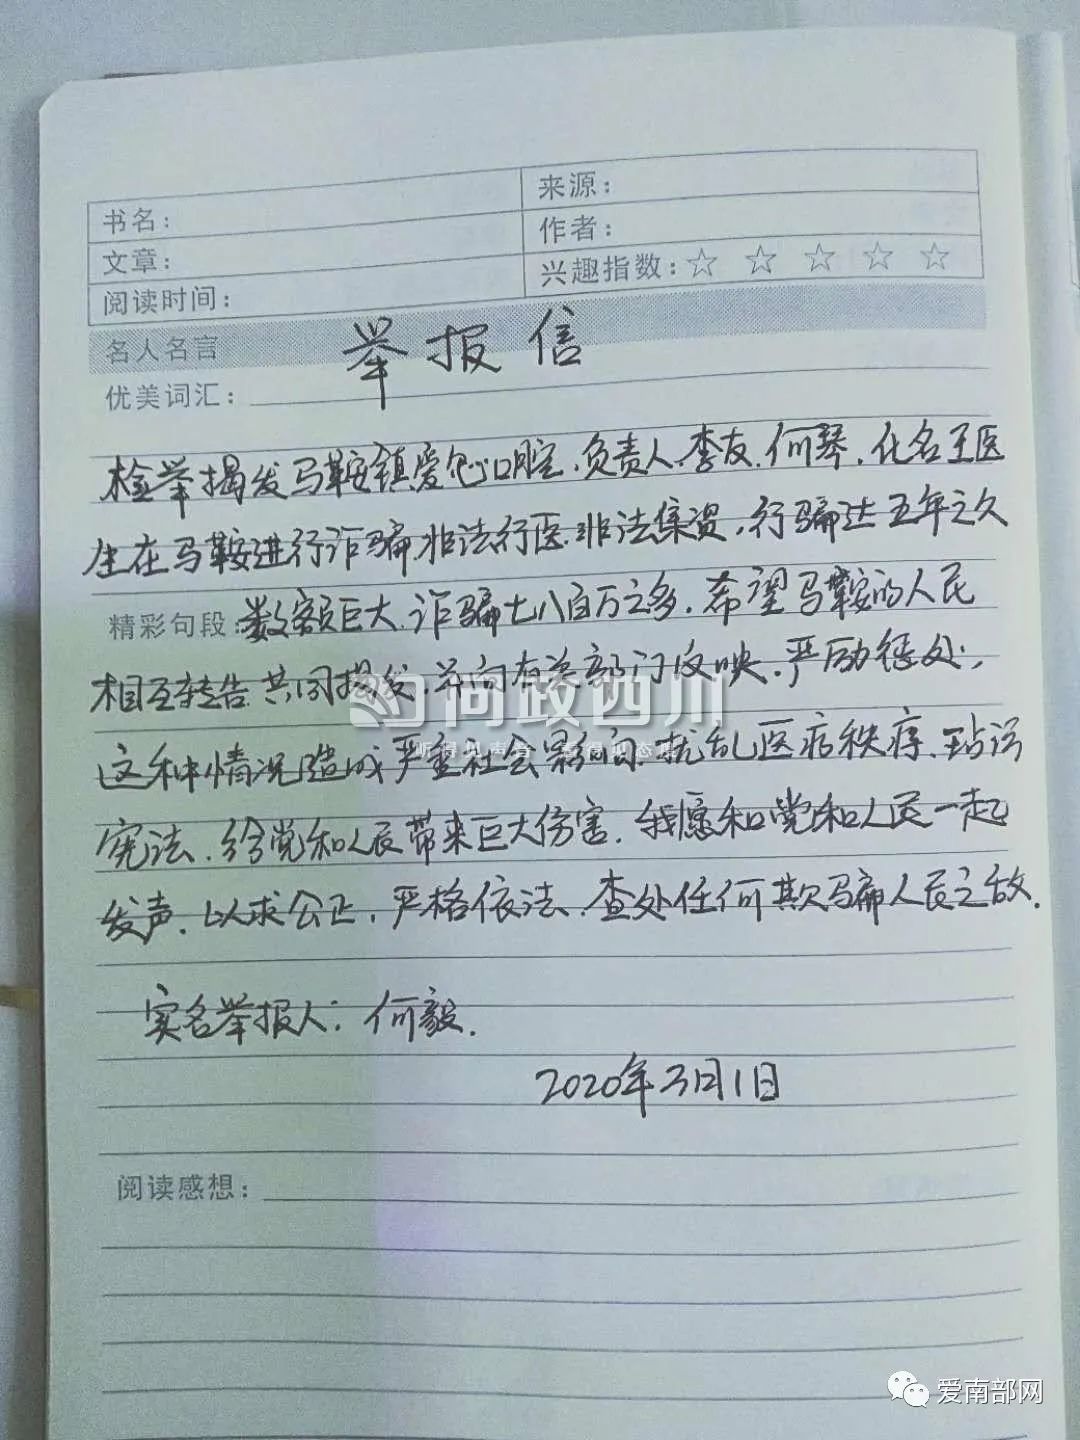 书名：
来源：
文章：
作者：
阅读时间：
兴趣指数：☆ ☆ ☆ ☆ ☆
名人名言
举报信
优美词汇：
检举揭发马鞍镇爱心口腔，负责人，李友，何琴，化名王医
生在马鞍进行诈骗非法行医，非法集资，行骗达五年之久
精彩句段：
数额巨大，诈骗七八百万之多，希望马鞍的人民
相互转告，共同揭发，并向有关部门反映，严励惩处，
这种情况造成严重社会影响，扰乱医疗秩序，玷污
宪法，给党和人民带来巨大伤害，我愿和党和人民一起
发声，以求公正，严格依法，查处任何欺骗人民之敌．
实名举报人：何毅．
2020年3月1日
阅读感想：
问政四川
爱南部网